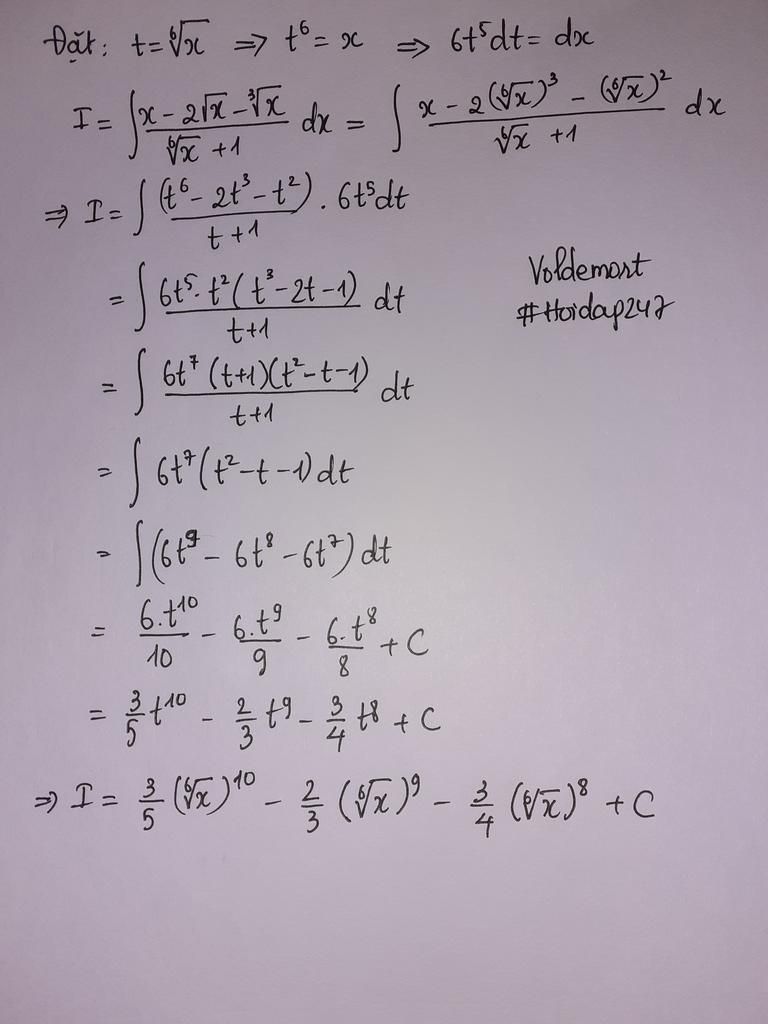 Đặt: t = ⁶√x ⇒ t⁶ = x ⇒ 6t⁵dt = dx
I = ∫ (x - 2√x - ³√x)/(⁶√x + 1) dx = ∫ (x - 2(⁶√x)³ - (⁶√x)²)/(⁶√x + 1) dx
⇒ I = ∫ (t⁶ - 2t³ - t²)/(t + 1) . 6t⁵dt
= ∫ (6t⁵. t² (t³ - 2t - 1))/(t+1) dt
Voldemort
#Hoidap247
= ∫ (6t⁷ (t+1)(t² - t - 1))/(t+1) dt
= ∫ 6t⁷ (t² - t - 1) dt
= ∫ (6t⁹ - 6t⁸ - 6t⁷) dt
= 6.t¹⁰/10 - 6.t⁹/9 - 6.t⁸/8 + C
= 3/5 t¹⁰ - 2/3 t⁹ - 3/4 t⁸ + C
⇒ I = 3/5 (⁶√x)¹⁰ - 2/3 (⁶√x)⁹ - 3/4 (⁶√x)⁸ + C